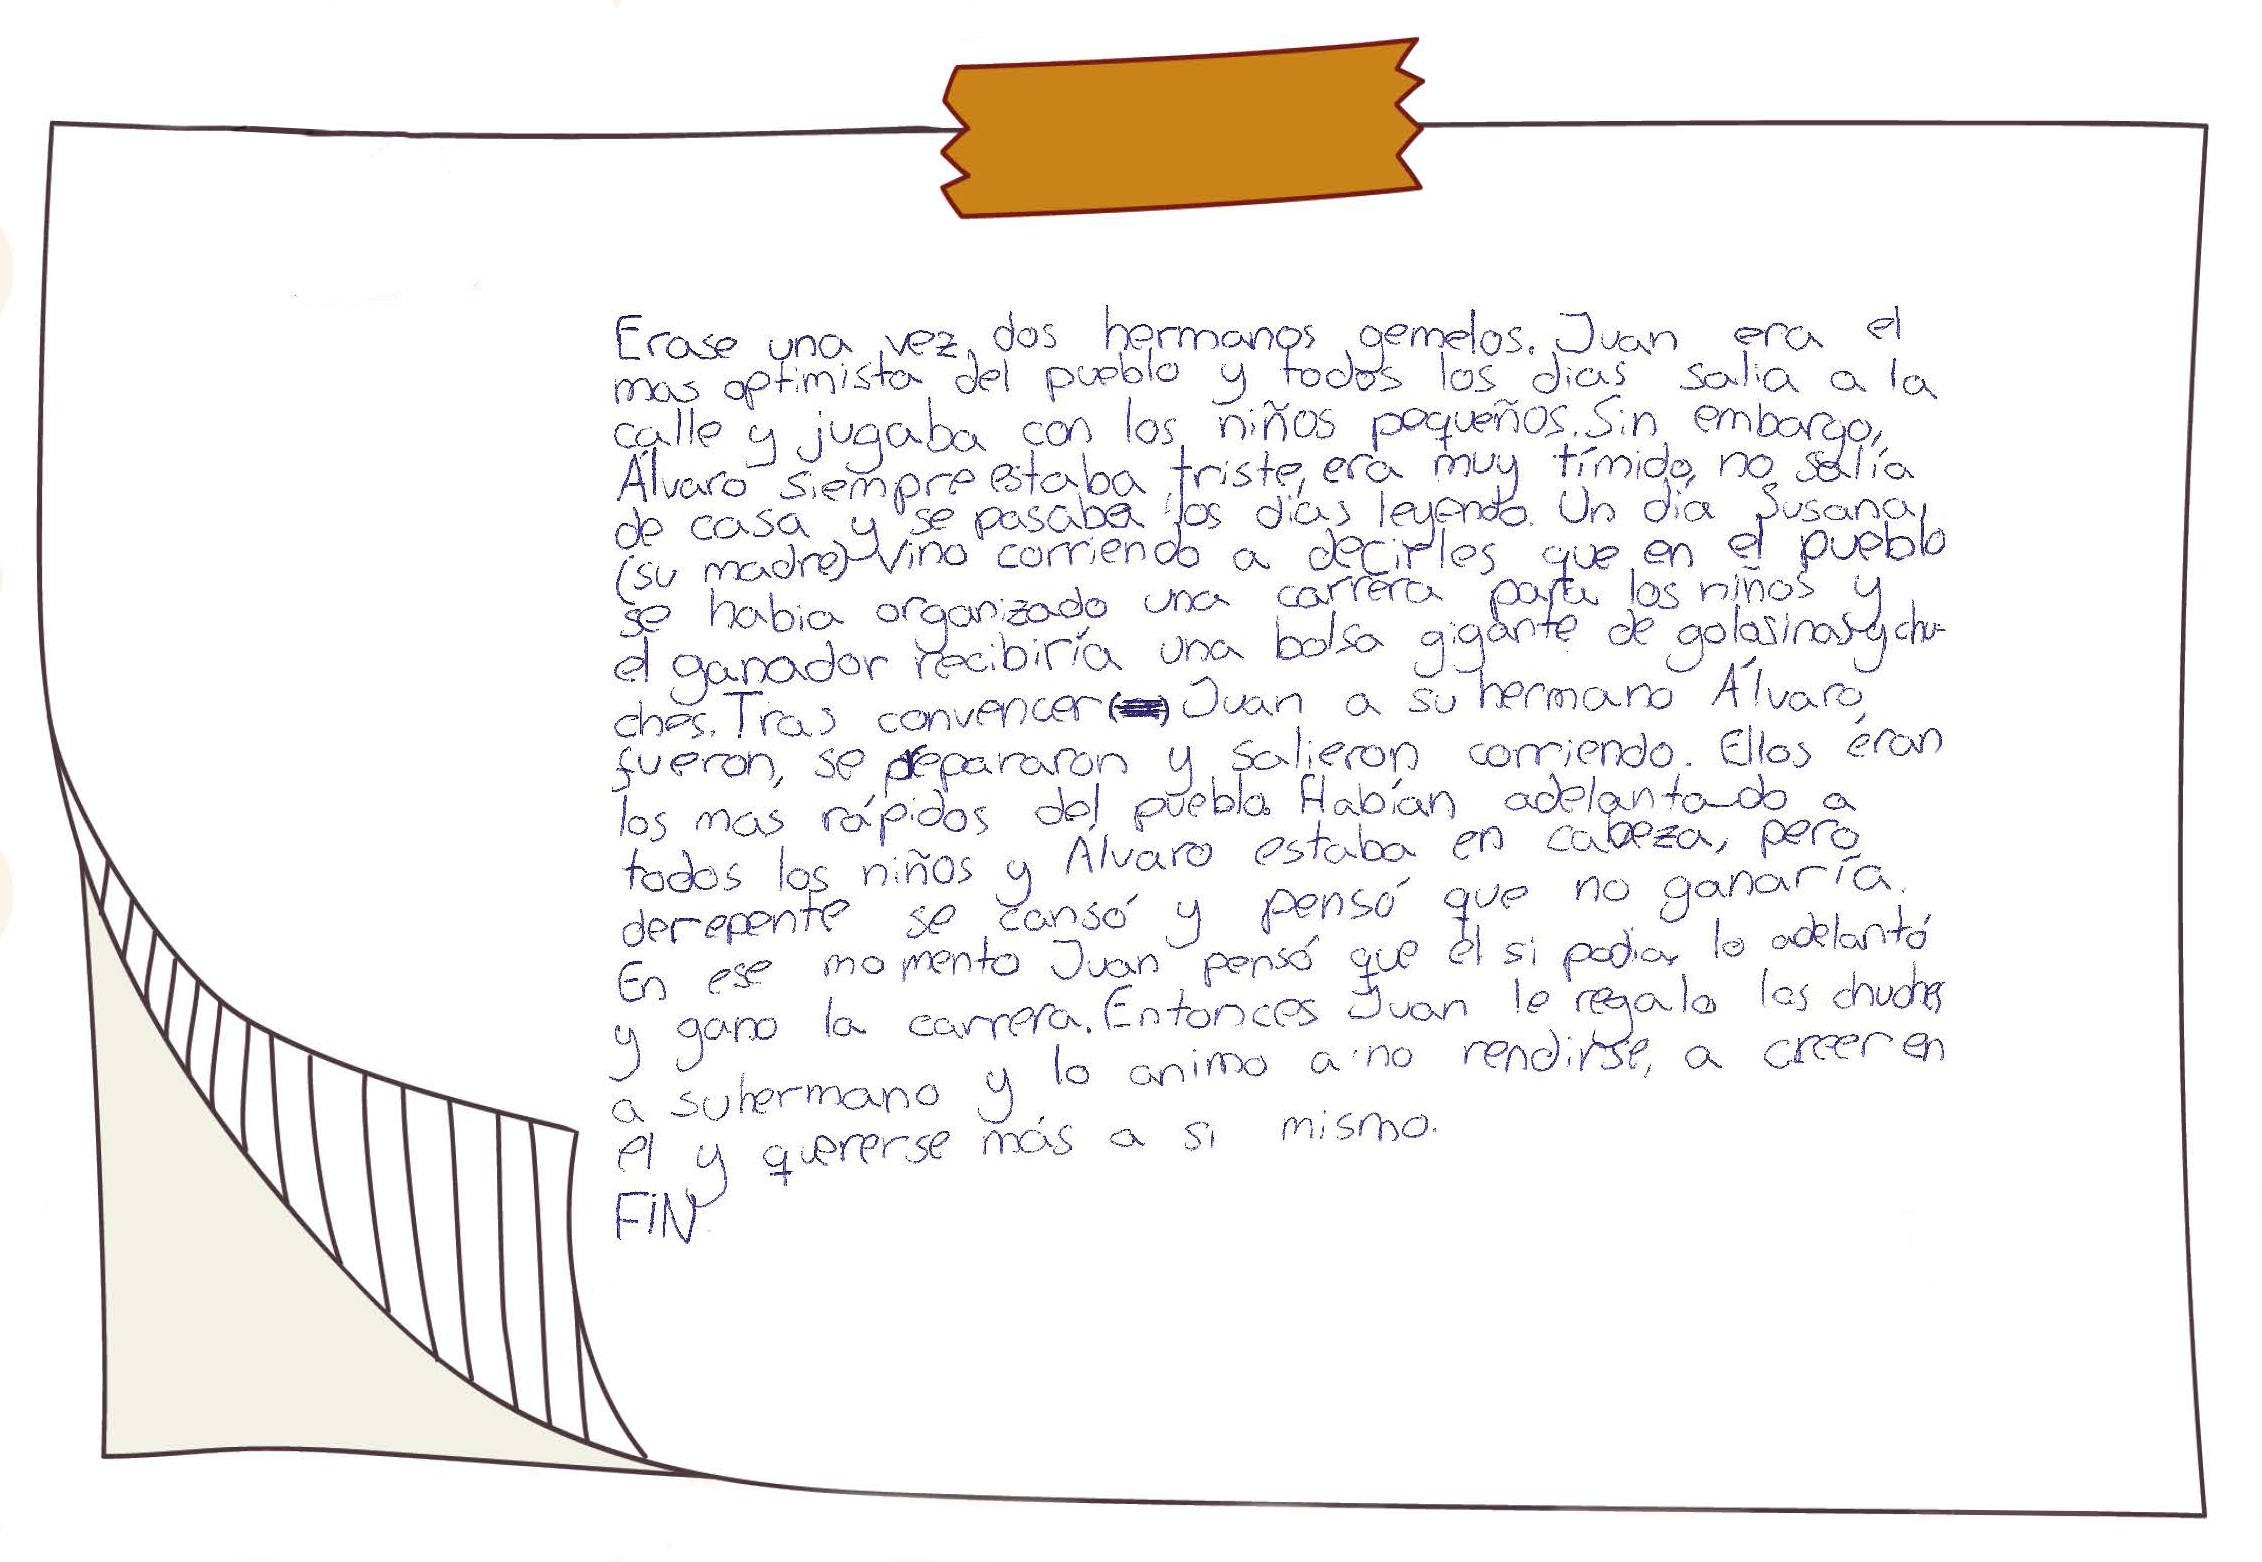 Erase una vez, dos hermanos gemelos. Juan era el
mas optimista del pueblo y todos los dias salia a la
calle y jugaba con los niños pequeños. Sin embargo,
Álvaro siempre estaba triste, era muy tímido, no salía
de casa y se pasaba los dias leyendo. Un día Susana,
(su madre) vino corriendo a decirles que en el pueblo
se habia organizado una carrera para los niños y
el ganador recibiría una bolsa gigante de golosinas y chu-
ches. Tras convencer Juan a su hermano Álvaro,
fueron, se prepararon y salieron corriendo. Ellos eran
los mas rápidos del pueblo. Habían adelantado a
todos los niños y Álvaro estaba en cabeza, pero
derepente se cansó y pensó que no ganaría.
En ese momento Juan pensó que él si podia, lo adelantó
y gano la carrera. Entonces Juan le regalo las chuches
a su hermano y lo animo a no rendirse, a creer en
él y quererse más a si mismo.
FIN